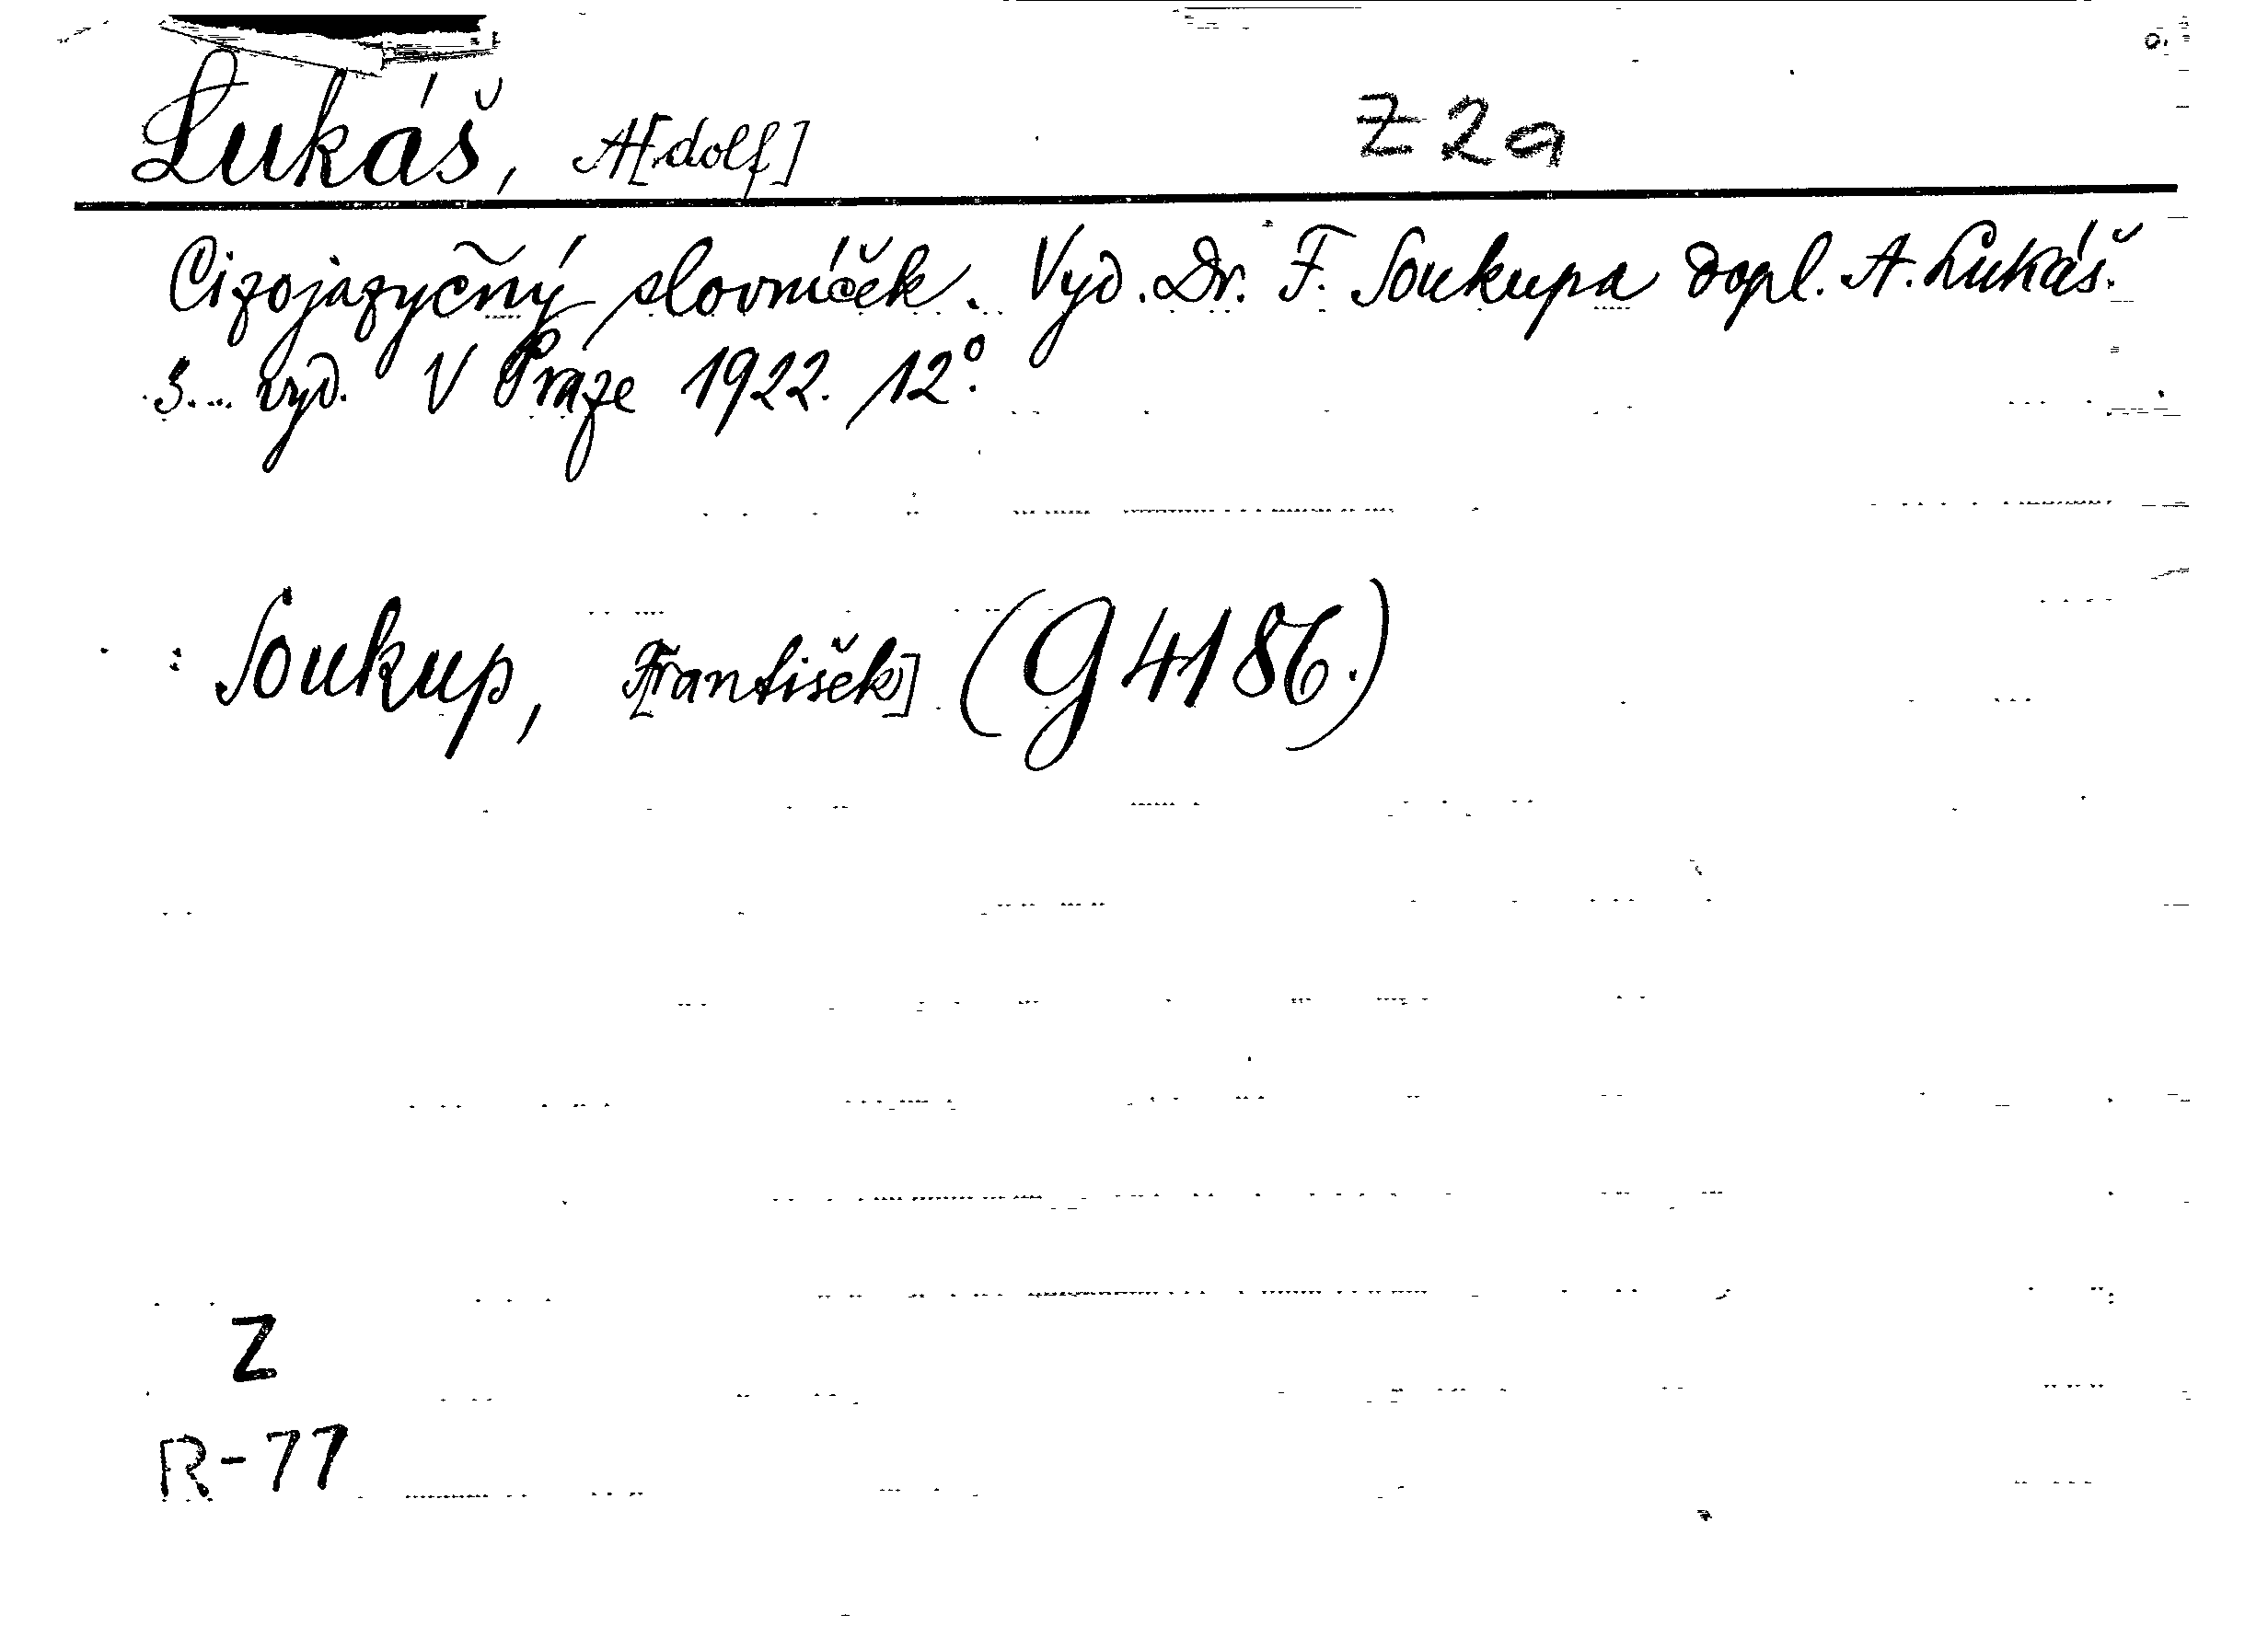 Lukáš, A[dolf] Z 2a
Cizojazyčný slovníček. Vyd. Dr. F. Soukupa dopl. A. Lukáš.
3. vyd. V Praze 1922. 12°.
: Soukup, F[rantišek] (G 4186.)
Z
R-77